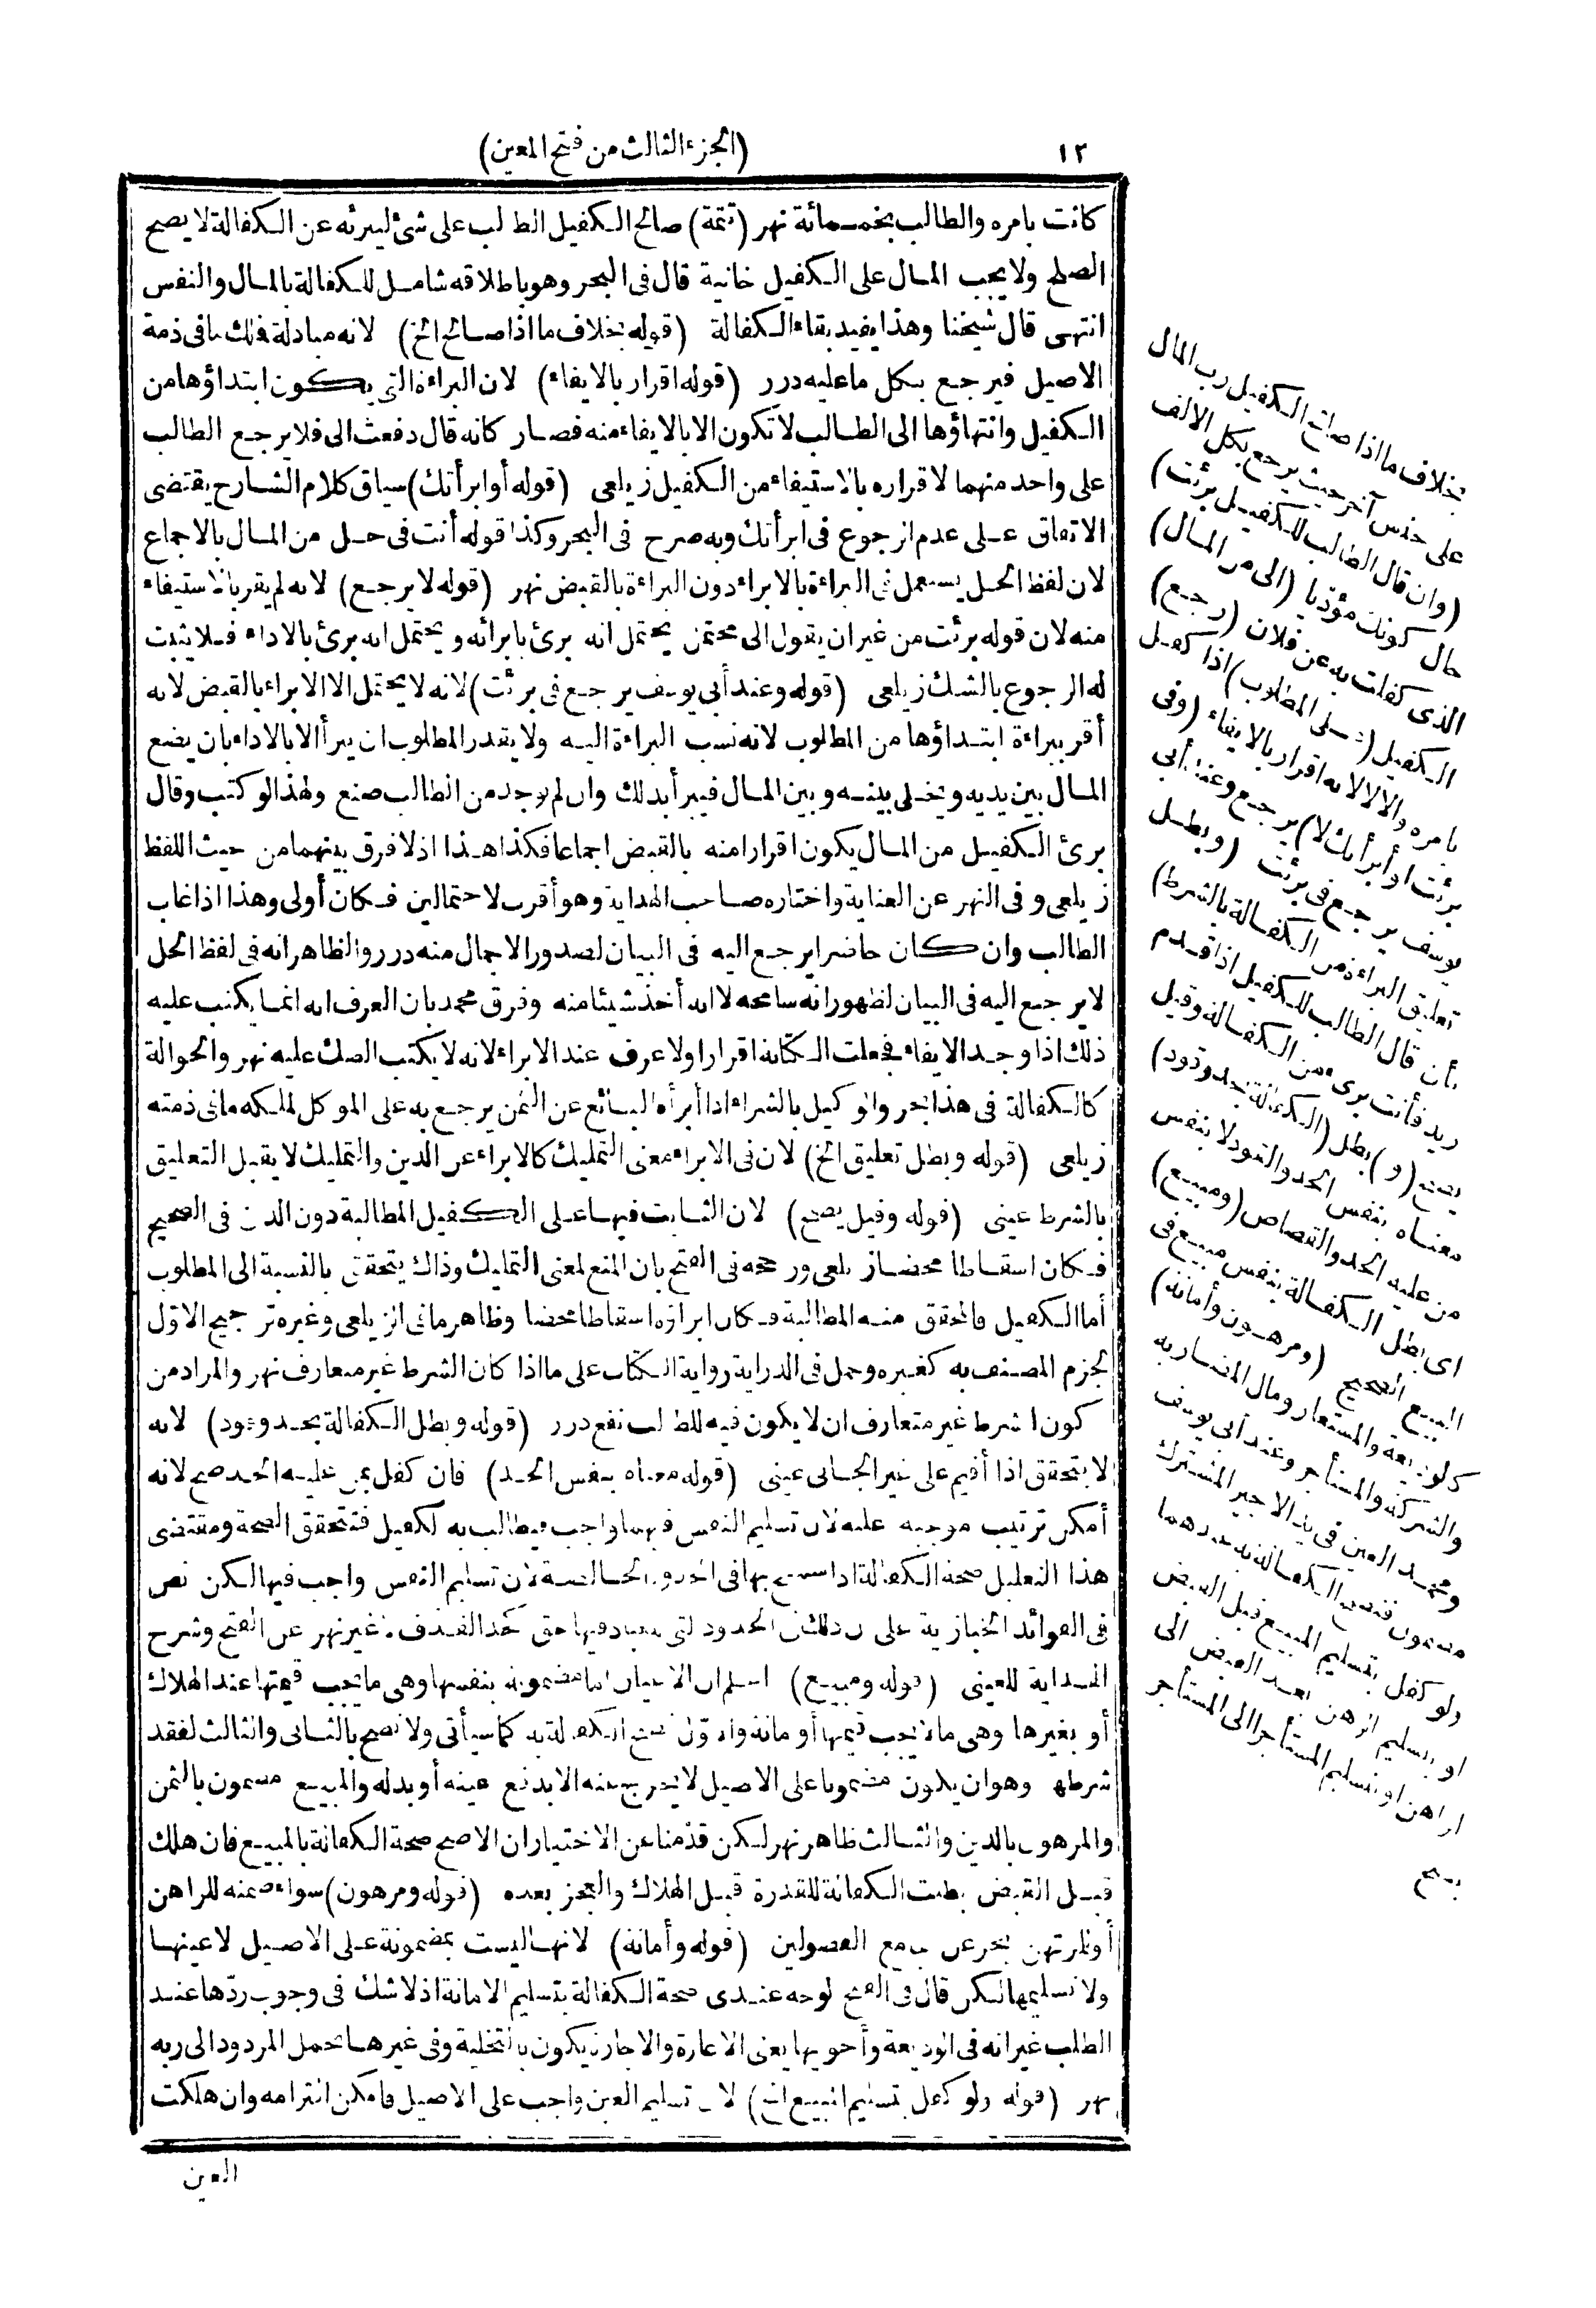 ١٢
(الجزء الثالث من فتح المعين)
كانت بامره والطالب بخمسمائة نهر (تتمة) صالح الكفيل الطالب على شئ ليبرئه عن الكفالة لا يصح
الصلح ولا يجب المال على الكفيل خانية قال في البحر وهو باطلاقه شامل للكفالة بالمال والنفس
انتهى قال شيخنا وهذا يفيد بقاء الكفالة (قوله بخلاف ما اذا صالح الخ) لانه مبادلة فملك ما في ذمة
الاصيل فيرجع بكل ما عليه درر (قوله اقرار بالايفاء) لان البراءة التي يكون ابتداؤها من
الكفيل وانتهاؤها الى الطالب لا تكون الا بالايفاء منه فصار كانه قال دفعت الى فلا يرجع الطالب
على واحد منهما لاقراره بالاستيفاء من الكفيل زيلعى (قوله أو ابرأتك) سياق كلام الشارح يقتضى
الاتفاق على عدم الرجوع في ابرأتك وبه صرح في البحر وكذا قوله أنت في حل من المال بالاجماع
لان لفظ الحل يستعمل في البراءة بالابراء دون البراءة بالقبض نهر (قوله لا يرجع) لانه لم يقر بالاستيفاء
منه لان قوله برئت من غير ان يقول الى محتمل يحتمل انه برئ بابرائه ويحتمل انه برئ بالاداء فلا يثبت
له الرجوع بالشك زيلعى (قوله وعند أبي يوسف يرجع في برئت) لانه لا يحتمل الا الابراء بالقبض لانه
أقر ببراءة ابتداؤها من المطلوب لانه نسب البراءة اليه ولا يقدر المطلوب ان يبرأ الا بالاداء بان يضع
المال بين يديه ويخلى بينه وبين المال فيبرأ بذلك وان لم يوجد من الطالب صنع ولهذا لو كتب وقال
برئ الكفيل من المال يكون اقرارا منه بالقبض اجماعا فكذا هذا اذ لا فرق بينهما من حيث اللفظ
زيلعى وفى النهر عن العناية واختاره صاحب الهداية وهو أقرب لاحتمالين فكان أولى وهذا اذا غاب
الطالب وان كان حاضرا يرجع اليه في البيان لصدور الاجمال منه درر والظاهر انه في لفظ الحل
لا يرجع اليه في البيان لظهور انه سامحه لا انه أخذ شيئا منه وفرق محمد بان العرف انه انما يكتب عليه
ذلك اذا وجد الايفاء فجعلت الكتابة اقرارا ولا عرف عند الابراء لانه لا يكتب الصك عليه نهر والحوالة
كالكفالة في هذا بحر والوكيل بالشراء اذا أبرأه البائع عن الثمن يرجع به على الموكل لملكه ما في ذمته
زيلعى (قوله وبطل تعليق الخ) لان في الابراء معنى التمليك كالابراء عن الدين والتمليك لا يقبل التعليق
بالشرط عينى (قوله وقيل يصح) لان الثابت فيها على الكفيل المطالبة دون الدين في الصحيح
فكان اسقاطا محضا زيلعى ورجحه في الفتح بان المنع لمعنى التمليك وذاك يتحقق بالنسبة الى المطلوب
أما الكفيل فالمحقق منه المطالبة فكان ابراؤه اسقاطا محضا وظاهر ما في الزيلعى وغيره ترجيح الاوّل
لجزم المصنف به كغيره وحمل في الدراية رواية الكتاب على ما اذا كان الشرط غير متعارف نهر والمراد من
كون الشرط غير متعارف ان لا يكون فيه للطالب نفع درر (قوله وبطل الكفالة بحد وقود) لانه
لا يتحقق اذا أقيم على غير الجانى عينى (قوله معناه بنفس الحد) فان كفل بمن عليه الحد صح لانه
أمكن ترتيب موجبه عليه لان تسليم النفس فيهما واجب فيطالب به الكفيل فتتحقق الصحة ومقتضى
هذا التعليل صحة الكفالة اذا سمح بها في الحدود الخالصة لان تسليم النفس واجب فيها لكن نص
في الفوائد الخبازية على ان ذلك في الحدود التي للعباد فيها حق كحد القذف لا غير نهر عن الفتح وشرح
الهداية للعينى (قوله ومبيع) اعلم ان الاعيان اما مضمونة بنفسها وهي ما تجب قيمتها عند الهلاك
أو بغيرها وهي ما لا يجب قيمتها أو مانة والاوّل تصح الكفالة به كما سيأتى ولا تصح بالثانى والثالث لفقد
شرطها وهو ان يكون مضمونا على الاصيل لا يخرج عنه الا بدفع عينه أو بدله والمبيع مضمون بالثمن
والمرهون بالدين والثالث ظاهر نهر لكن قدّمنا عن الاختيار ان الاصح صحة الكفالة بالمبيع فان هلك
قبل القبض بطلت الكفالة للقدرة قبل الهلاك والعجز بعده (قوله ومرهون) سواء ضمنه للراهن
أو للمرتهن بحر عن جامع الفصولين (قوله وأمانة) لانها ليست بمضمونة على الاصيل لا عينها
ولا تسليمها لكن قال في الفتح الوجه عندى صحة الكفالة بتسليم الامانة اذ لا شك في وجوب ردّها عند
الطلب غير انه في الوديعة وأخويها يعنى الاعارة والاجارة يكون بالتخلية وفي غيرها بحمل المردود الى ربه
نهر (قوله ولو كفل بتسليم المبيع الخ) لان تسليم العين واجب على الاصيل فامكن التزامه وان هلكت
العين
بخلاف ما اذا صالح الكفيل رب المال
على جنس آخر حيث يرجع بكل الالف
(وان قال الطالب للكفيل برئت)
حال كونك مؤديا (الى من المال)
الذى كفلت به عن فلان (رجع)
الكفيل (على المطلوب) اذا كفل
بامره والا لا لانه اقرار بالايفاء (وفى
برئت أو أبرأتك لا) يرجع وعند أبى
يوسف يرجع في برئت (وبطل
تعليق البراءة من الكفالة بالشرط)
بأن قال الطالب للكفيل اذا قدم
زيد فأنت برىء من الكفالة وقيل
يصح (و) بطل (الكفالة بحد وقود)
معناه بنفس الحد والقود لا بنفس
من عليه الحد والقصاص (ومبيع)
اى بطل الكفالة بنفس مبيع فى
البيع الصحيح (ومرهون وأمانة)
كالوديعة والمستعار ومال المضاربه
والشركة والمستأجر وعند أبى يوسف
ومحمد العين فى يد الاجير المشترك
مضمون فتصح الكفالة به عندهما
ولو كفل بتسليم المبيع قبل القبض
او بتسليم الرهن بعد القبض الى
الراهن او بتسليم المستأجر الى المستأجر
يصح